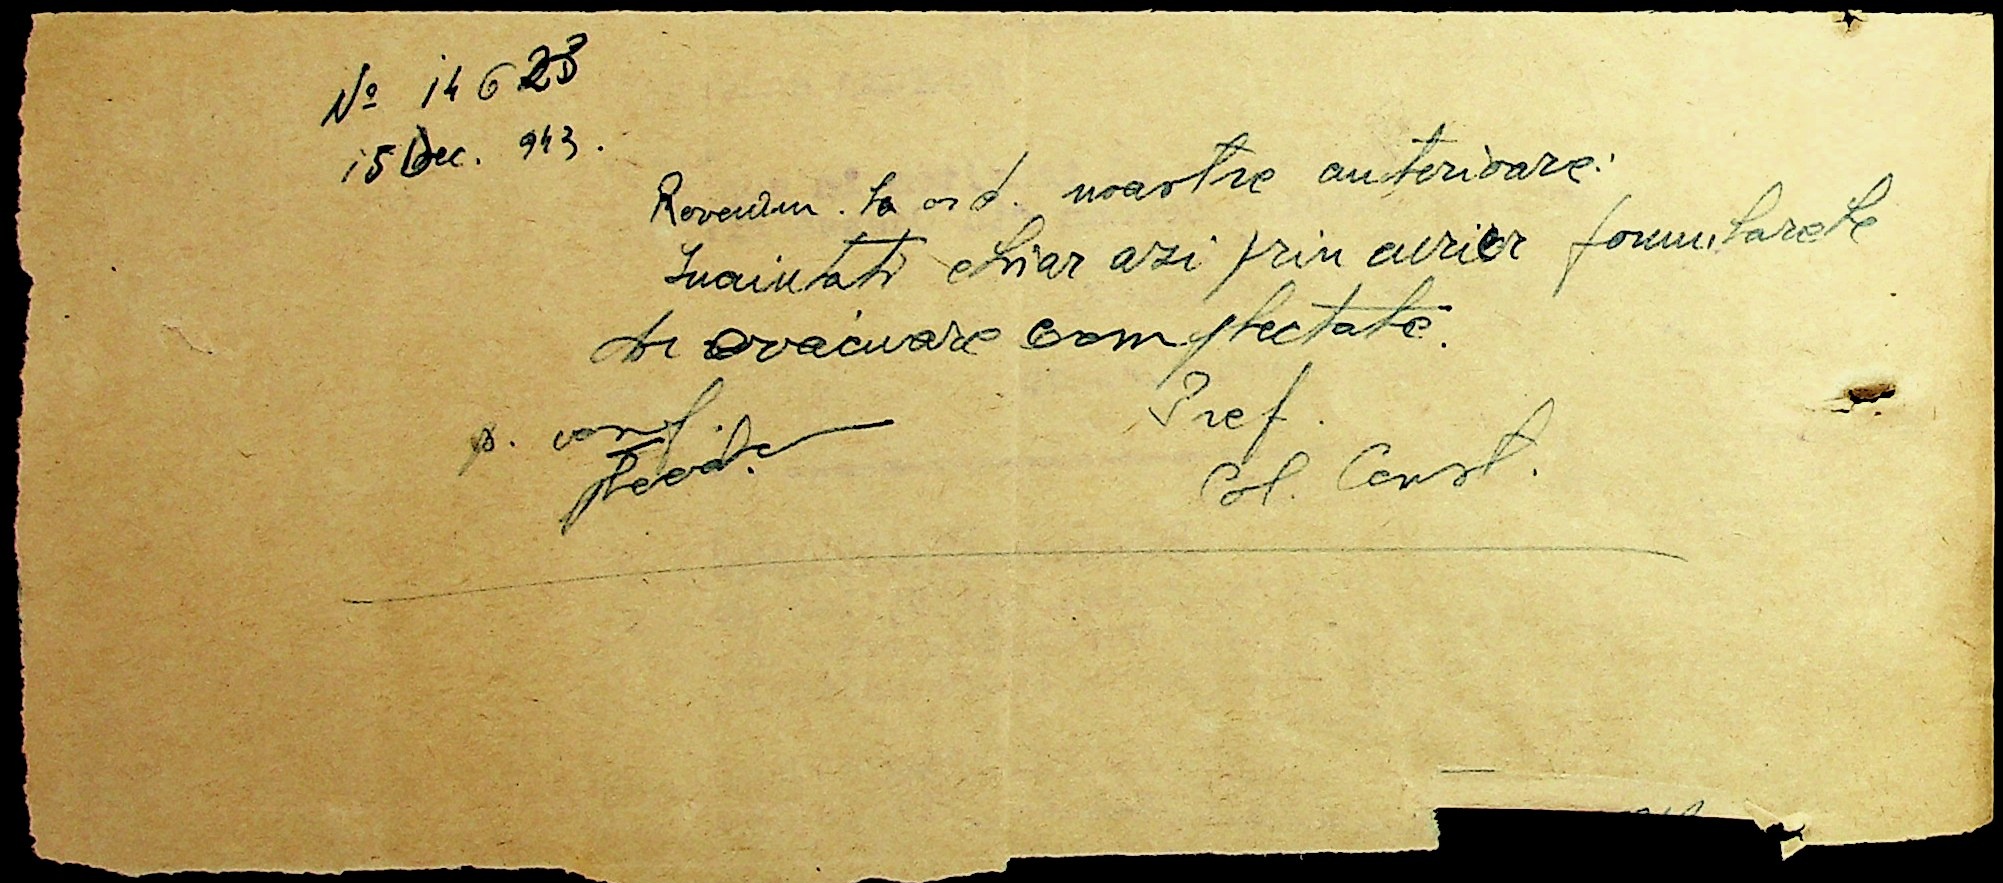 No 14623
15 Dec. 943.
Revenim. la ord. noastre anterioare:
Inaintati chiar azi prin curier formularele
de evacuare complectate.
Pref.
p. conf.
Col. Const.